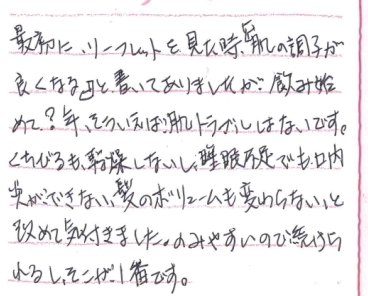 最初に、リーフレットを見た時、「肌の調子が
良くなる」と書いてありましたが、飲み始
めて?年、そういえば肌トラブルはないです。
くちびるも乾燥しないし、睡眠不足でも口内
炎ができない、髪のボリュームも変わらない、と
改めて気付きました。のみやすいので続けら
れるし、そこが1番です。